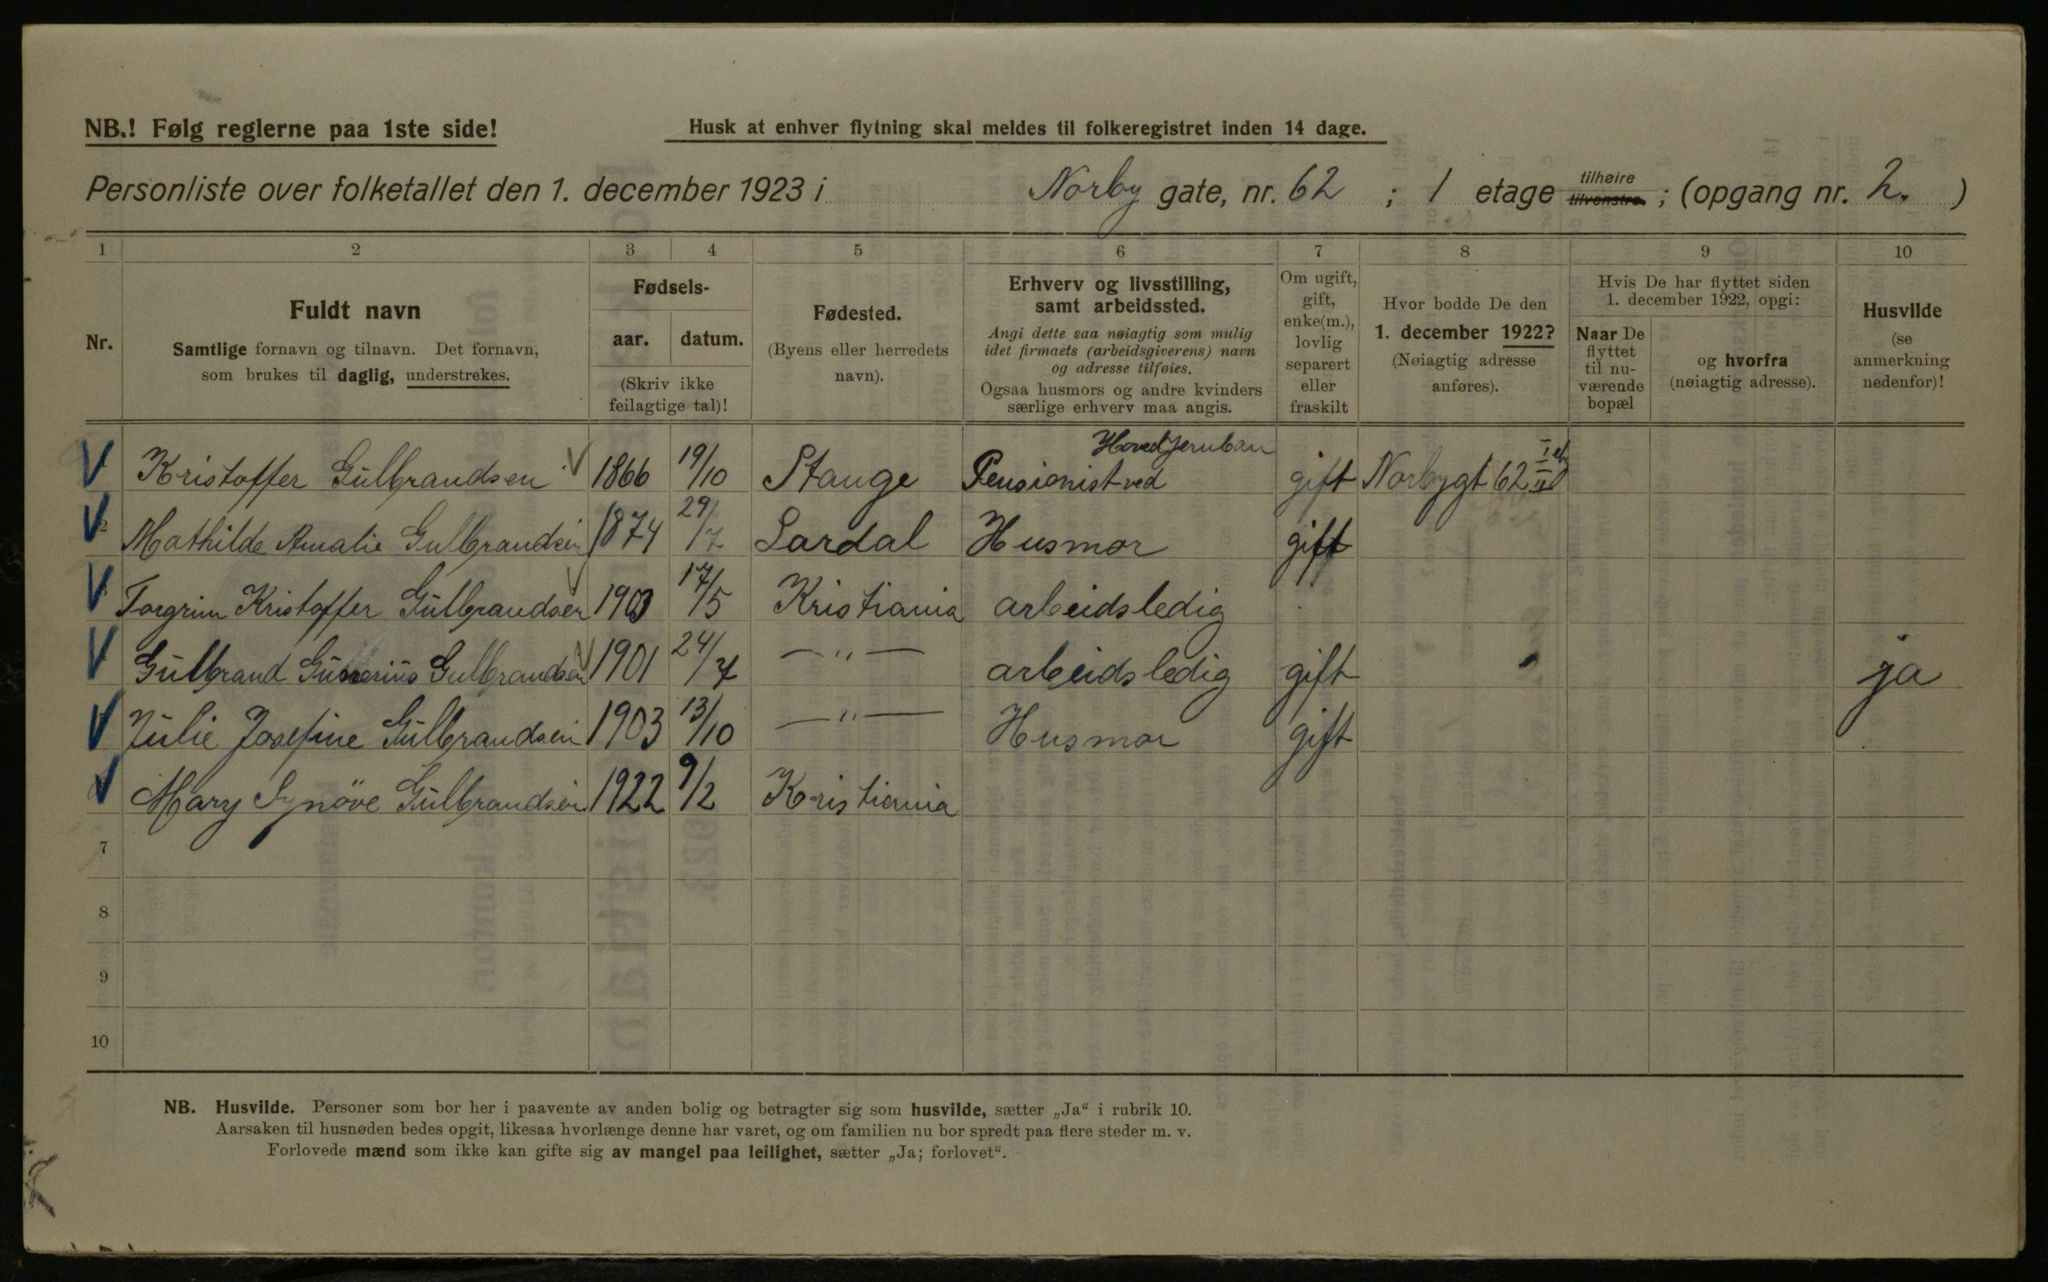 NB.! Følg reglerne paa 1ste side!
Husk at enhver flytning skal meldes til folkeregistret inden 14 dage.
Personliste over folketallet den 1. december 1923 i Norby gate, nr. 62 ; 1 etage tilhøire tilvenstre. ; (opgang nr. 2. )
1 2 3 4 5 6 7 8 9 10
Nr.
Fuldt navn
Samtlige fornavn og tilnavn. Det fornavn,
som brukes til daglig, understrekes.
Fødsels-
aar. datum.
(Skriv ikke
feilagtige tal)!
Fødested.
(Byens eller herredets
navn).
Erhverv og livsstilling,
samt arbeidssted.
Angi dette saa nøiagtig som mulig
idet firmaets (arbeidsgiverens) navn
og adresse tilføies.
Ogsaa husmors og andre kvinders
særlige erhverv maa angis.
Om ugift,
gift,
enke(m.),
lovlig
separert
eller
fraskilt
Hvor bodde De den
1. december 1922?
(Nøiagtig adresse
anføres).
Hvis De har flyttet siden
1. december 1922, opgi:
Naar De
flyttet
til nu-
værende
bopæl
og hvorfra
(nøiagtig adresse).
Husvilde
(se
anmerkning
nedenfor)!
Kristoffer Gulbrandsen 1866 19/10 Stange Pensionist ved Hovedjernban gift Norbygt 62
Mathilde Amalie Gulbrandsen 1874 29/7 Lardal Husmor gift
Torgrim Kristoffer Gulbrandsen 1903 17/5 Kristiania arbeidsledig
Gulbrand Gunerius Gulbrandsen 1901 24/7 — „ — arbeidsledig gift ja
Julie Josefine Gulbrandsen 1903 13/10 — „ — Husmor gift
Mary Synöve Gulbrandsen 1922 9/2 Kristiania
7
8
9
10
NB. Husvilde. Personer som bor her i paavente av anden bolig og betragter sig som husvilde, sætter „Ja“ i rubrik 10.
Aarsaken til husnøden bedes opgit, likesaa hvorlænge denne har varet, og om familien nu bor spredt paa flere steder m. v.
Forlovede mænd som ikke kan gifte sig av mangel paa leilighet, sætter „Ja; forlovet“.